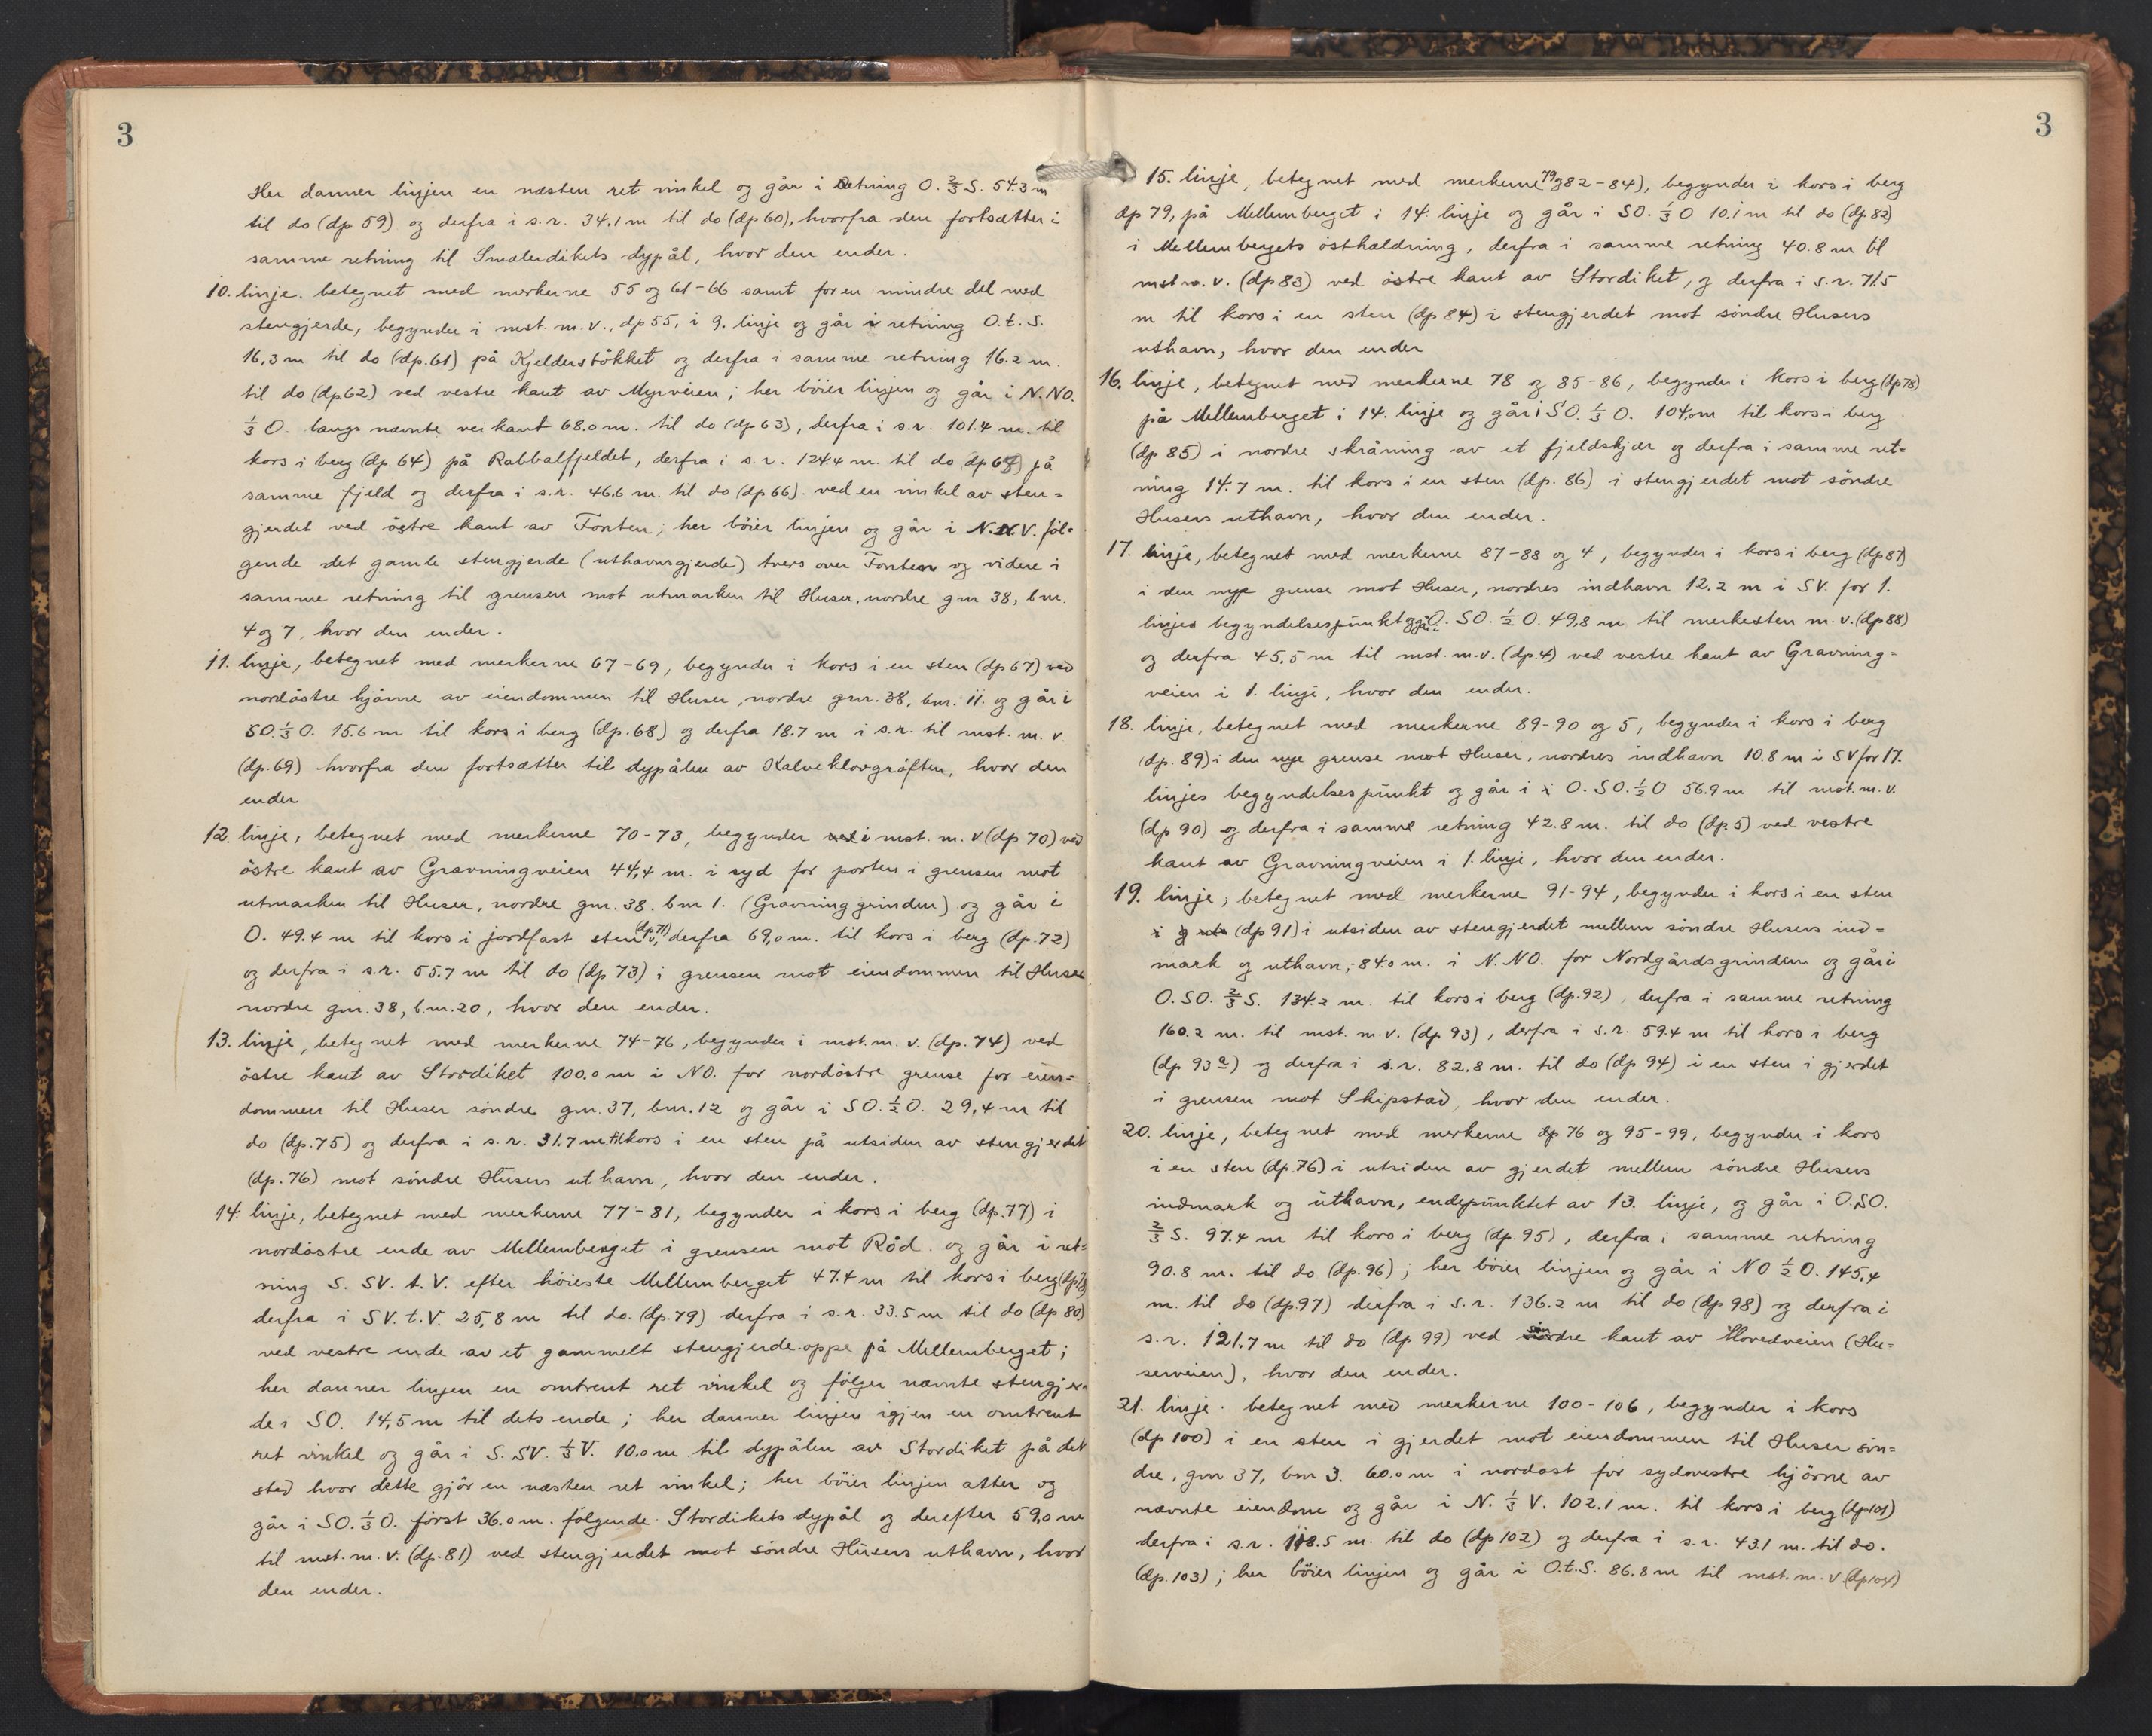 3
Her danner linjen en næsten ret vinkel og går i Retning O. 2/3 S. 54.3 m
til do (dp 59) og derfra i s.r. 34.1 m til do (dp 60), hvorfra den fortsætter i
samme retning til Smælerdikets dypål, hvor den ender.
10. linje. betegnet med merkerne 55 og 61-66 samt for en mindre del med
stengjerde, begynder i mst. m.v., dp 55, i 9. linje og går i retning O.t.S.
16,3 m til do (dp.61) på Kjelderstökket og derfra i samme retning 16.2 m.
til do (dp 62) ved vestre kant av Myrveien; her böier linjen og går i N.NO.
1/3 O. langs nævnte veikant 68.0 m. til do (dp 63), derfra i s.r. 101.4 m. til
kors i berg (dp. 64) på Rabbalfjeldet, derfra i s.r. 124.4 m. til do (dp 65) på
samme fjeld og derfra i s.r. 46.6 m. til do (dp 66). ved en vinkel av sten=
gjerdet ved östre kant av Fonten; her böier linjen og går i N.N.V. föl=
gende det gamle stengjerde (uthavnsgjerde) tvers over Fonten og videre i
samme retning til grensen mot utmarken til Huser, nordre gnr 38, bnr.
4 og 7, hvor den ender.
11. linje, betegnet med merkerne 67-69, begynder i kors i en sten (dp 67) ved
nordöstre hjörne av eiendommen til Huser, nordre gnr. 38, bnr. 11. og går i
SO. 1/3 O. 15.6 m til kors i berg (dp. 68) og derfra 18.7 m i s.r. til mst. m. v.
(dp. 69) hvorfra den fortsætter til dypålen av Kalveklovgröften, hvor den
ender
12. linje, betegnet med merkerne 70-73, begynder ved i mst. m. v (dp 70) ved
östre kant av Gravningveien 44,4 m. i syd for porten i grensen mot
utmarken til Huser, nordre gnr. 38. bnr 1. (Gravninggrinden) og går i
O. 49.4 m til kors i jordfast sten (dp. 71), derfra 69,0 m. til kors i berg (dp. 72)
og derfra i s.r. 55.7 m til do (dp 73) i grensen mot eiendommen til Huser
nordre gnr. 38, b.nr. 20, hvor den ender.
13. linje, betegnet med merkerne 74-76, begynder i mst. m. v. (dp. 74) ved
östre kant av Stordiket 100.0 m i NO. for nordöstre grense for eien=
dommen til Huser söndre gnr. 37, bnr. 12 og går i SO. 1/2 O. 29,4 m til
do (dp. 75) og derfra i s. r. 31.7 m til kors i en sten på utsiden av stengjerdet
(dp. 76) mot söndre Husers uthavn, hvor den ender.
14. linje, betegnet med merkerne 77-81, begynder i kors i berg (dp. 77) i
nordöstre ende av Mellemberget i grensen mot Röd. og går i ret=
ning S. SV. t. V. efter höieste Mellemberget 47.4 m til kors i berg (dp 78)
derfra i SV. t. V. 25,8 m til do. (dp. 79) derfra i s.r. 33.5 m til do (dp 80)
ved vestre ende av et gammelt stengjerde oppe på Mellemberget;
her danner linjen en omtrent ret vinkel og fölger nævnte stengjer=
de i SO. 14,5 m til dets ende; her danner linjen igjen en omtrent
ret vinkel og går i S. SV. 1/3 V. 10.0 m til dypålen av Stordiket på det
sted hvor dette gjör en næsten ret vinkel; her böier linjen atter og
går i SO. 1/3 O. först 36.0 m. fölgende Stordikets dypål og derefter 59,0 m
til mst. m. v. (dp. 81) ved stengjerdet mot söndre Husers uthavn, hvor
den ender.
3
15. linje, betegnet med merkerne 79 og 82-84), begynder i kors i berg
dp 79, på Mellemberget i 14. linje og går i SO. 1/3 O 10.1 m til do (dp. 82)
i Mellembergets östhældning, derfra i samme retning 40.8 m til
mst m. v. (dp 83) ved östre kant av Stordiket, og derfra i s.r. 71.5
m til kors i en sten (dp 84) i stengjerdet mot söndre Husers
uthavn, hvor den ender
16. linje, betegnet med merkerne 78 og 85-86, begynder i kors i berg (dp 78)
på Mellemberget i 14. linje og går i SO. 1/3 O. 104,0 m til kors i berg
(dp 85) i nordre skråning av et fjeldskjær og derfra i samme ret=
ning 14.7 m. til kors i en sten (dp. 86) i stengjerdet mot söndre
Husers uthavn, hvor den ender.
17. linje, betegnet med merkerne 87-88 og 4, begynder i kors i berg (dp 87)
i den nye grense mot Huser, nordres indhavn 12.2 m i SV. for 1.
linjes begyndelsespunkt og går i O. SO. 1/2 O. 49,8 m til merkesten m. v. (dp 88)
og derfra 45,5 m til mst. m.v. (dp. 4) ved vestre kant av Gravning=
veien i 1. linje, hvor den ender.
18. linje, betegnet med merkerne 89-90 og 5, begynder i kors i berg
(dp. 89) i den nye grense mot Huser, nordres indhavn 10.8 m i SV for 17.
linjes begyndelsespunkt og går i i O. SO. 1/2 O 56.9 m til mst. m. v.
(dp 90) og derfra i samme retning 42.8 m. til do (dp. 5) ved vestre
kant av Gravningveien i 1. linje, hvor den ender.
19. linje, betegnet med merkerne 91-94, begynder i kors i en sten
(dp 91) i utsiden av stengjerdet mellem söndre Husers ind=
mark og uthavn, 84.0 m. i N. NO. for Nordgårdsgrinden og går i
O. SO. 2/3 S. 134.2 m. til kors i berg (dp. 92), derfra i samme retning
160.2 m. til mst. m.v. (dp 93), derfra i s.r. 59.4 m til kors i berg
(dp 93 a) og derfra i s.r. 82.8 m. til do (dp 94) i en sten i gjerdet
i grensen mot Skipstad, hvor den ender.
20. linje, betegnet med merkerne dp 76 og 95-99, begynder i kors
i en sten (dp. 76) i utsiden av gjerdet mellem söndre Husers
indmark og uthavn, endepunktet av 13. linje, og går i O. SO.
2/3 S. 97.4 m til kors i berg (dp. 95), derfra i samme retning
90.8 m. til do (dp. 96); her böier linjen og går i NO 1/2 O. 145,4
m. til do (dp. 97) derfra i s.r. 136.2 m til do (dp 98) og derfra i
s.r. 121.7 m til do (dp 99) ved söndre kant av Hovedveien (Hu=
serveien), hvor den ender.
21. linje. betegnet med merkerne 100-106, begynder i kors
(dp 100) i en sten i gjerdet mot eiendommen til Huser sön=
dre, gnr. 37, bnr 3. 60.0 m i nordost for sydvestre hjörne av
nævnte eiendom og går i N. 1/3 V. 102.1 m. til kors i berg (dp 101)
derfra i s.r. 118.5 m. til do (dp 102) og derfra i s.r. 43.1 m. til do.
(dp. 103); her böier linjen og går i O.t.S. 86.8 m til mst. m. v. (dp 104)